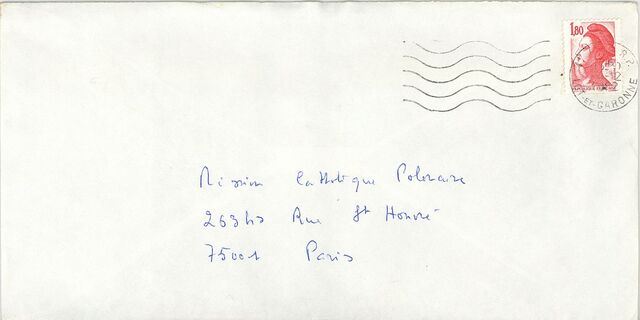 1,80
REPUBLIQUE FRANCAISE
ET-GARONNE
Mission Catholique Polonaise
263 bis Rue St Honoré
75001 Paris